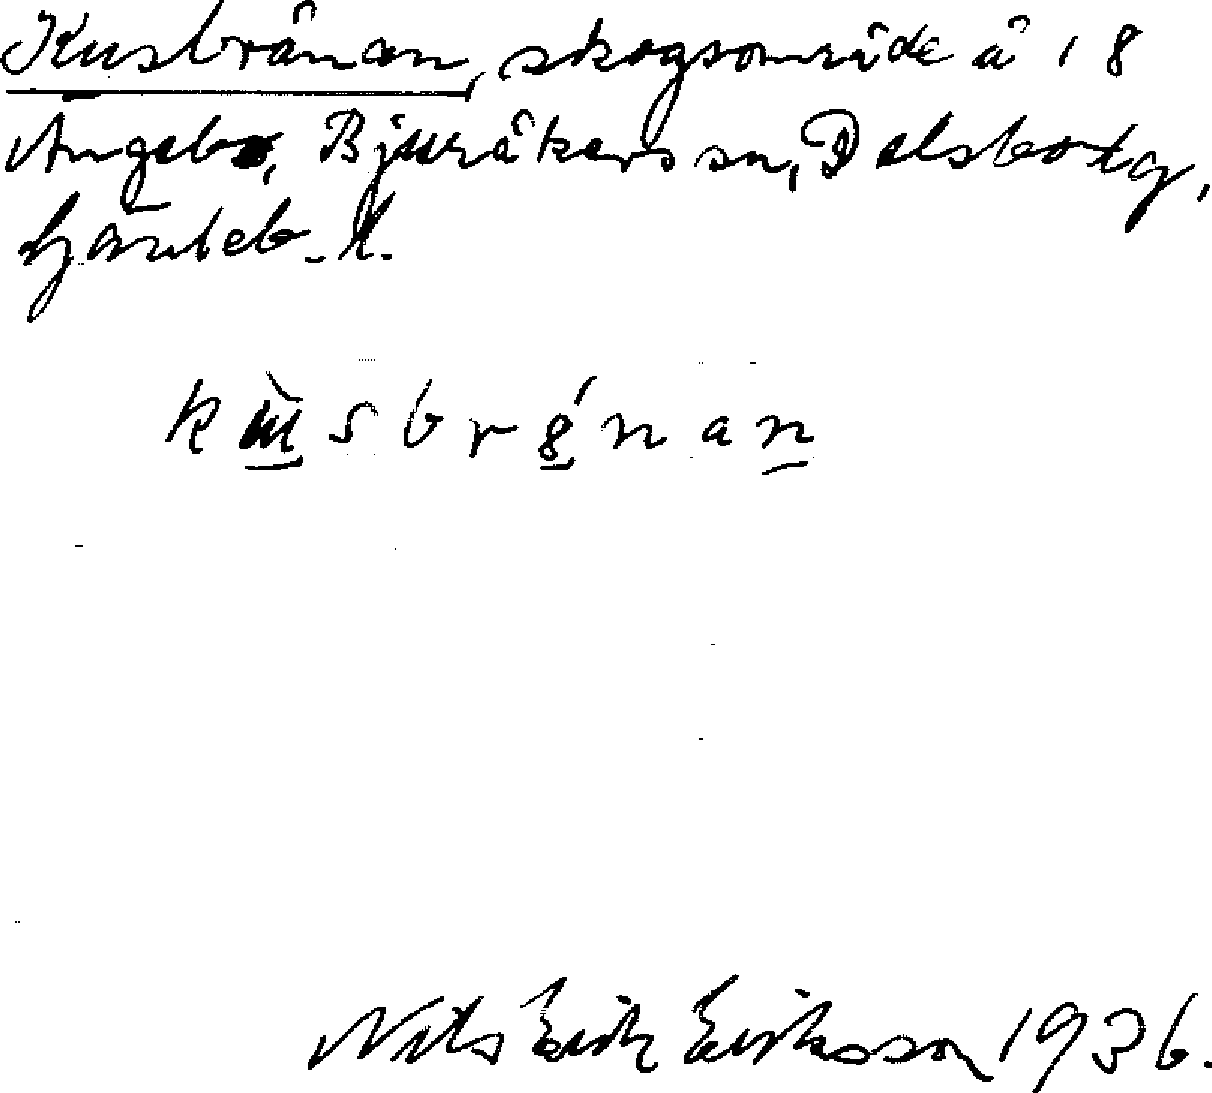 Kusbrånan, skogsområde å 18
Ängebo, Bjuråkers sn, Delsbo tg,
Gävleb. l.
kusbrånan
Nils Erik Eriksson 1936.